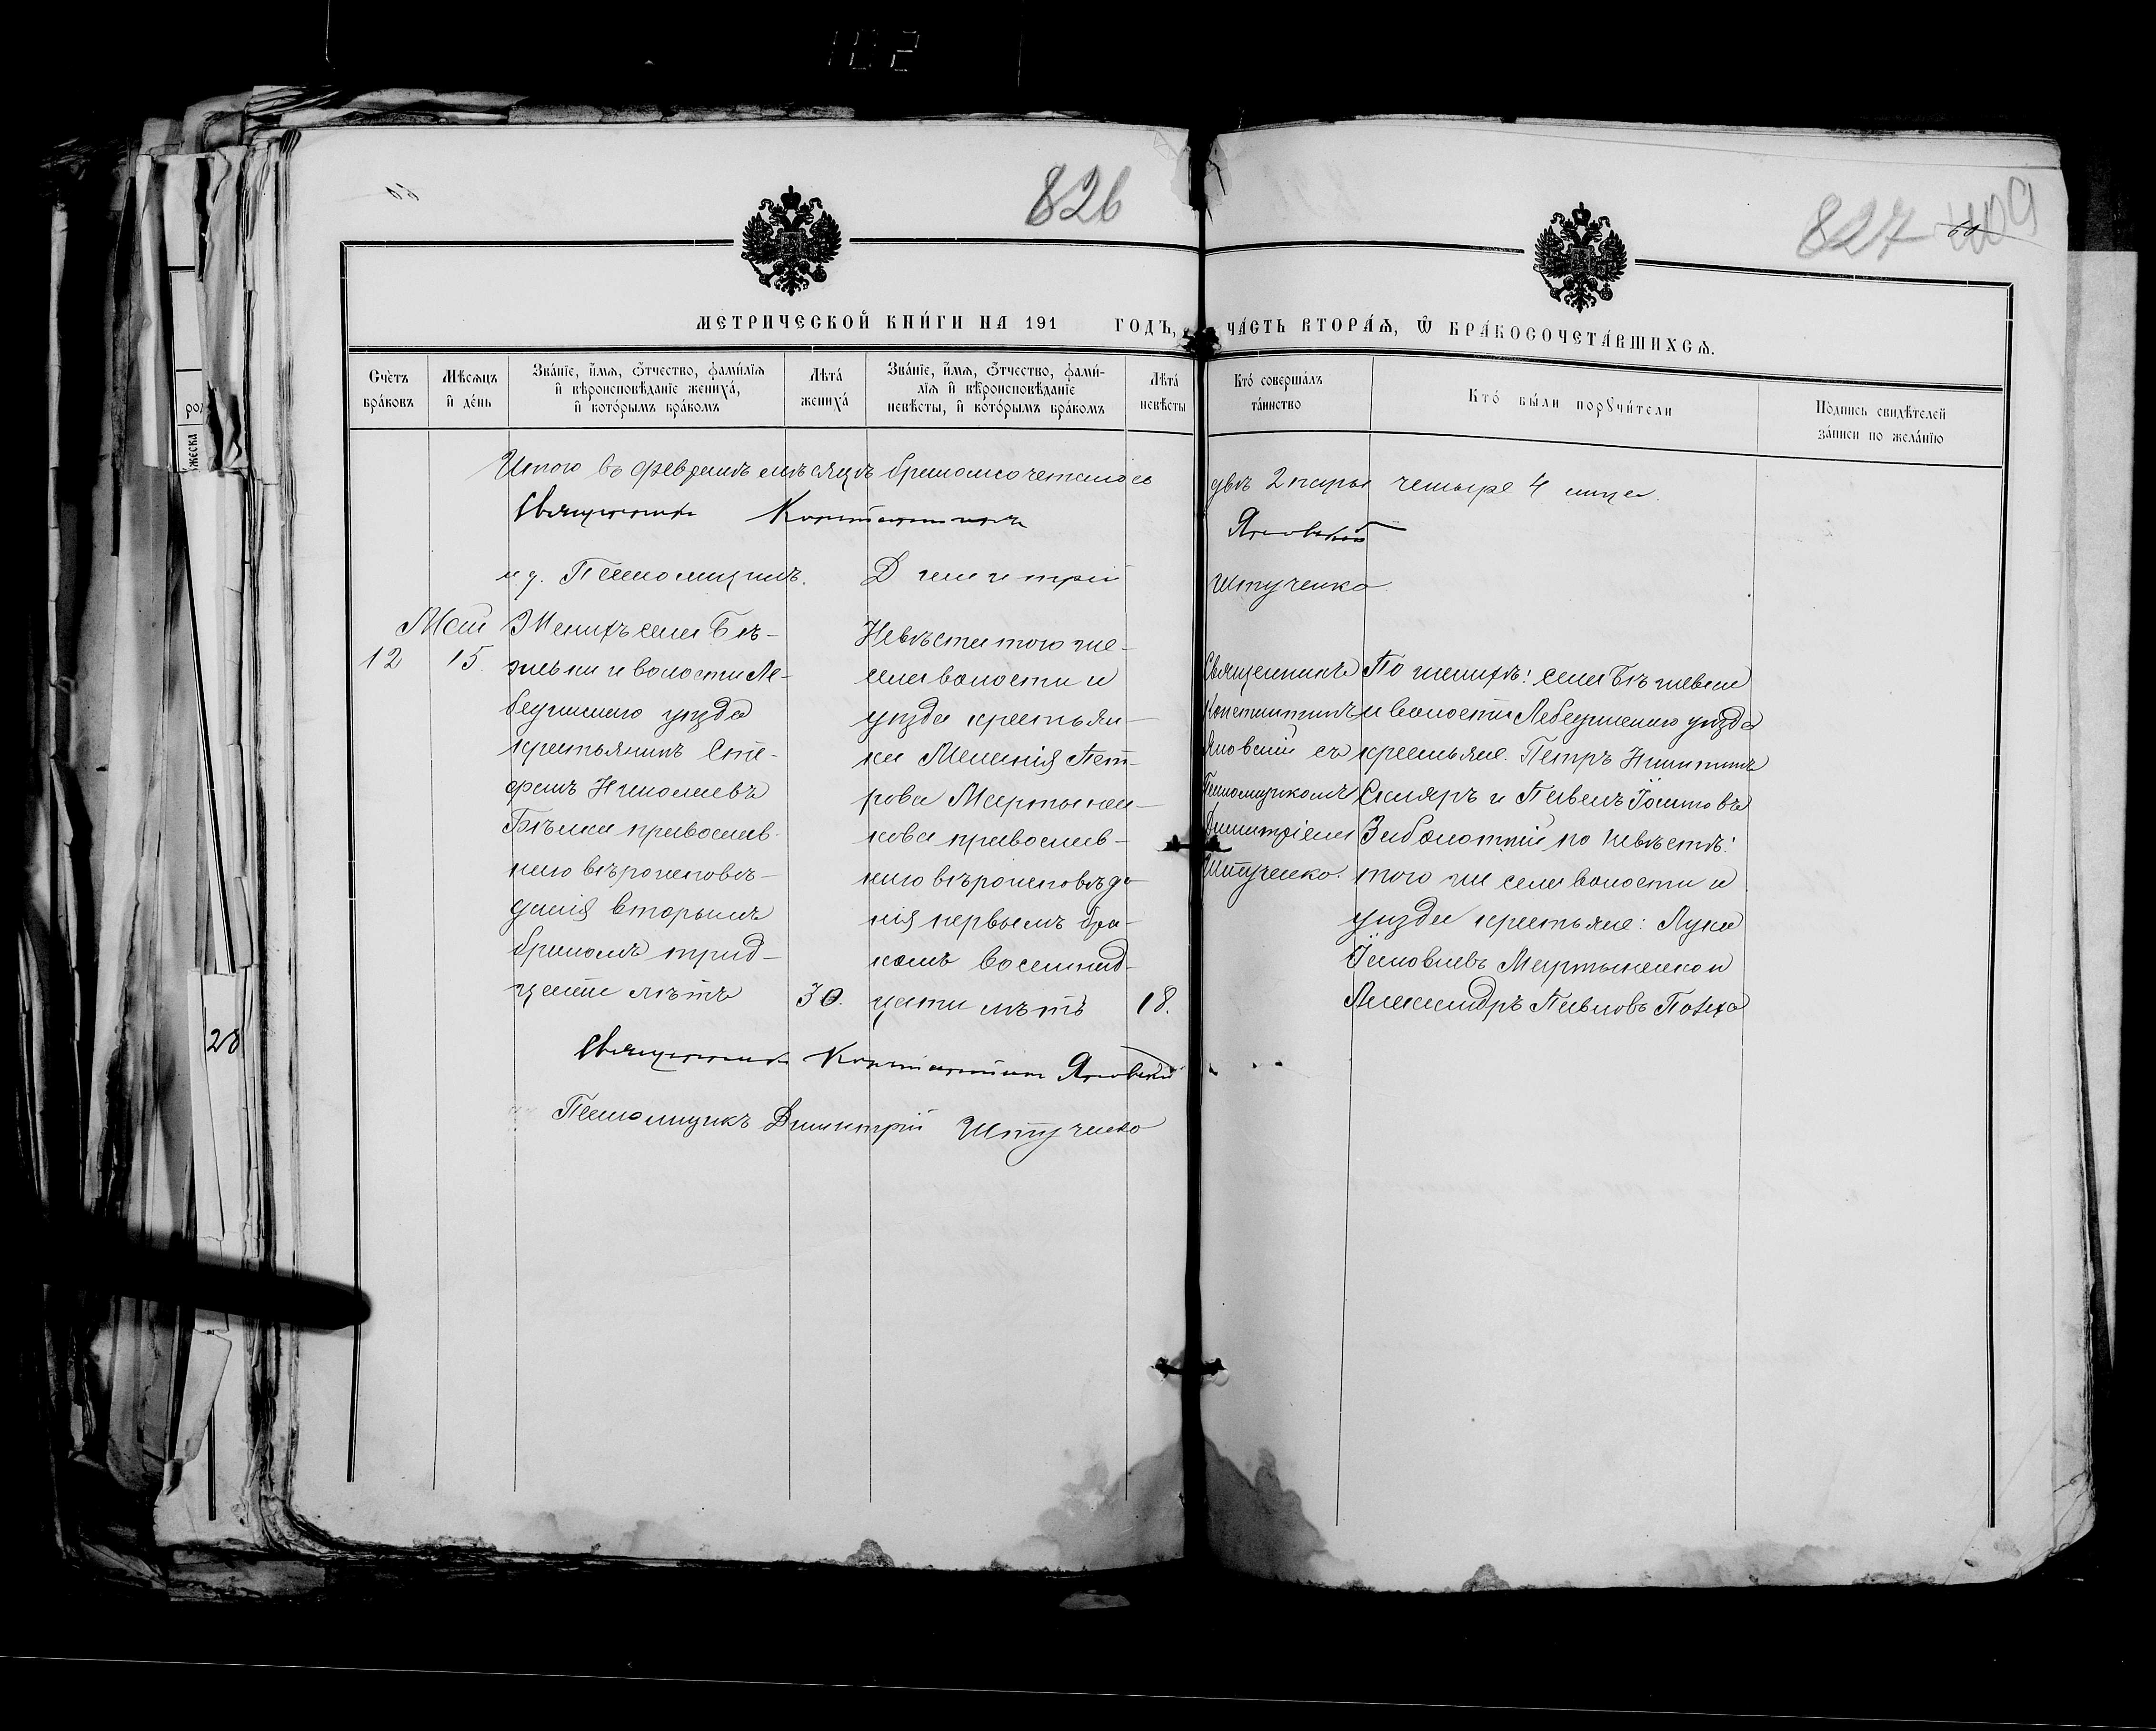 102
826
827 409
60
МЕТРИЧЕСКОЙ КНИ́ГИ НА 191 ГОДЪ, ЧА́СТЬ ВТОРА́Ѧ, Ѿ БРА́КОСОЧЕТА́ВШИХСѦ.
Сче́тъ бра́ковъ
Мѣ́сѧцъ и҆ де́нь
Зва́нїе, и҆́мѧ, ѻ҆́тчество, фами́лїѧ и҆ вѣроисповѣ́данїе жениха́, и҆ кото́рымъ бра́комъ
Лѣта́ жениха́
Зва́нїе, и҆́мѧ, ѻ҆́тчество, фами́- лїѧ и҆ вѣроисповѣ́данїе невѣ́сты, и҆ кото́рымъ бра́комъ
Лѣта́ невѣ́сты
Кто̀ соверша́лъ та́инство
Кто̀ бы́ли порꙋчи́тели
По́дпись свидѣ́телей за́писи по жела́нїю
Итого въ февралѣ мѣсяцѣ бракосочеталось двѣ 2 пары четыре 4 лица.
Священникъ Константинъ Яновскій
и д. Псаломщика. Димитрій Штученко
Май
12
15.
Женихъ села Бѣ-
жевки и волости Ле-
бединскаго уѣзда
крестьянинъ Сте-
фанъ Николаевъ
Бѣлка православ-
наго вѣроисповѣ-
данія вторымъ
бракомъ трид-
цати лѣтъ
30.
Невѣста того же
села волости и
уѣзда крестьян-
ка Меланія Пет-
рова Мартынен-
кова православ-
наго вѣроисповѣда-
нія первымъ бра-
комъ восемнад-
цати лѣтъ
18.
Священникъ
Константинъ
Яновскій съ
Псаломщикомъ
Димитріемъ
Штученко.
По женихѣ: села Бѣжевки
и волости Лебединскаго уѣзда
крестьяне. Петръ Никитинъ
Скляръ и Павелъ
Заболотній по невѣстѣ:
того же села волости и
уѣзда крестьяне: Лука
Яковлевъ Мартыненко и
Александръ Павловъ
Священникъ Константинъ Яновскій
Псаломщикъ Димитрій Штученко
28